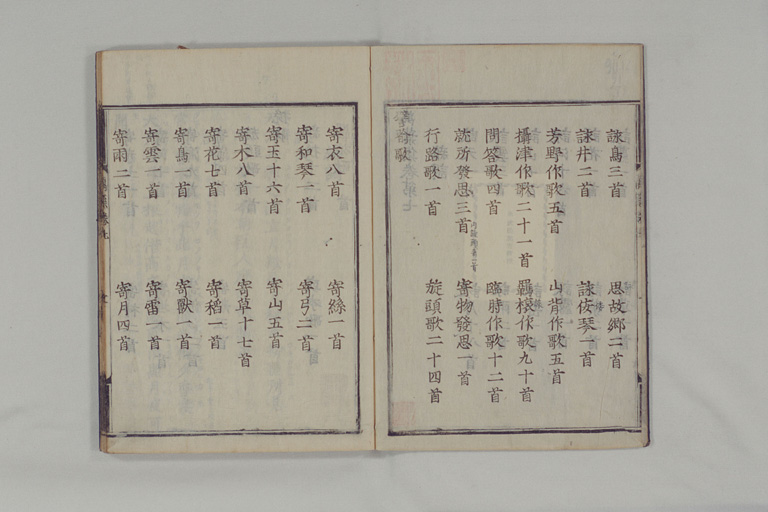 詠鳥三首 思故郷二首
詠井二首 詠倭琴一首
芳野作歌五首 山背作歌五首
攝津作歌二十一首 羇旅作歌九十首
問答歌四首 臨時作歌十二首
就所發思三首 寄物發思一首
行路歌一首 旋頭歌二十四首
譬喩歌
寄衣八首 寄絲一首
寄和琴一首 寄弓二首
寄玉十六首 寄山五首
寄木八首 寄草十七首
寄花七首 寄稻一首
寄鳥一首 寄獸一首
寄雲一首 寄雷一首
寄雨二首 寄月四首